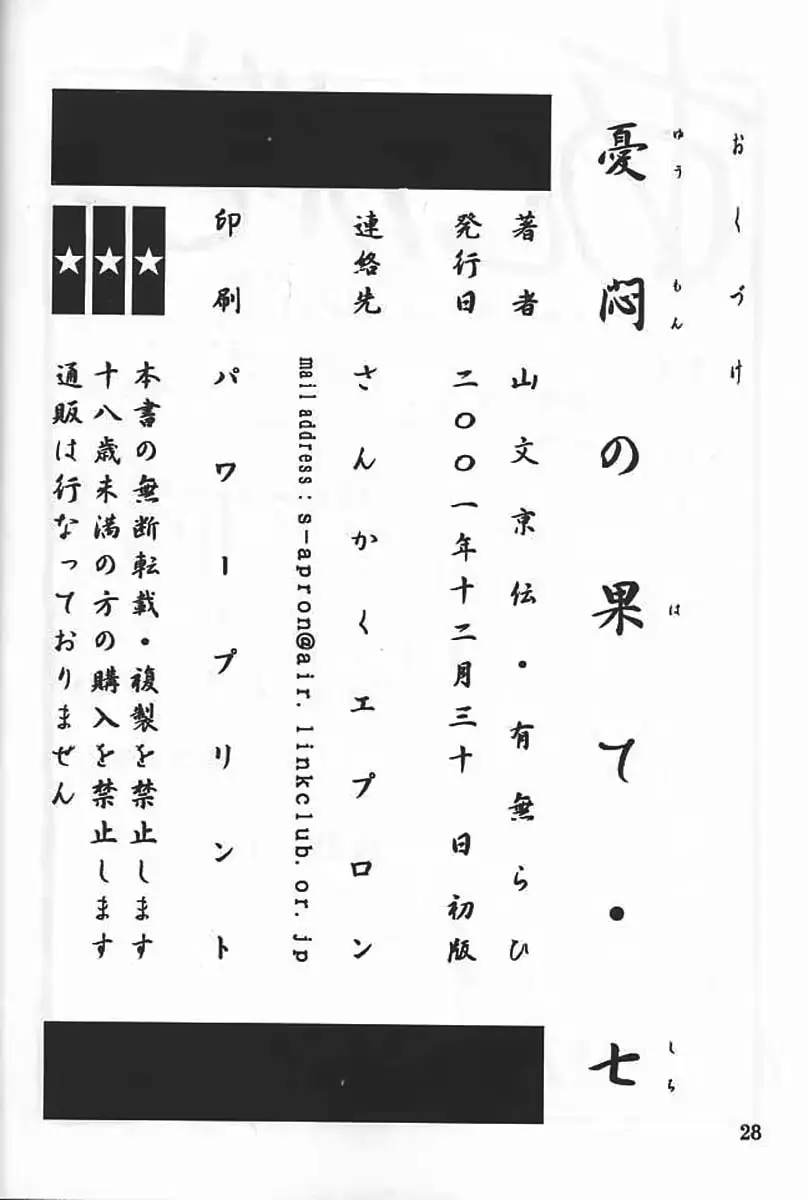 おくづけ
ゆうもんはしち
憂悶の果て・七
著者 山文京伝・有無らひ
発行日 二〇〇一年十二月三十日初版
連絡先 さんかくエプロン
mail address: s-apron@air.linkclub.or.jp
印刷 パワープリント
★本書の無断転載・複製を禁止します
★十八歳未満の方の購入を禁止します
★通販は行なっておりません
28